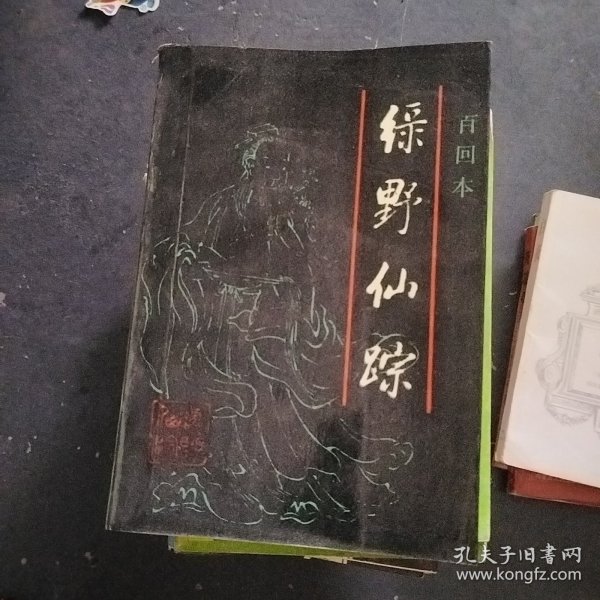 百回本
绿野仙踪
孔夫子旧书网
www.kongfz.com